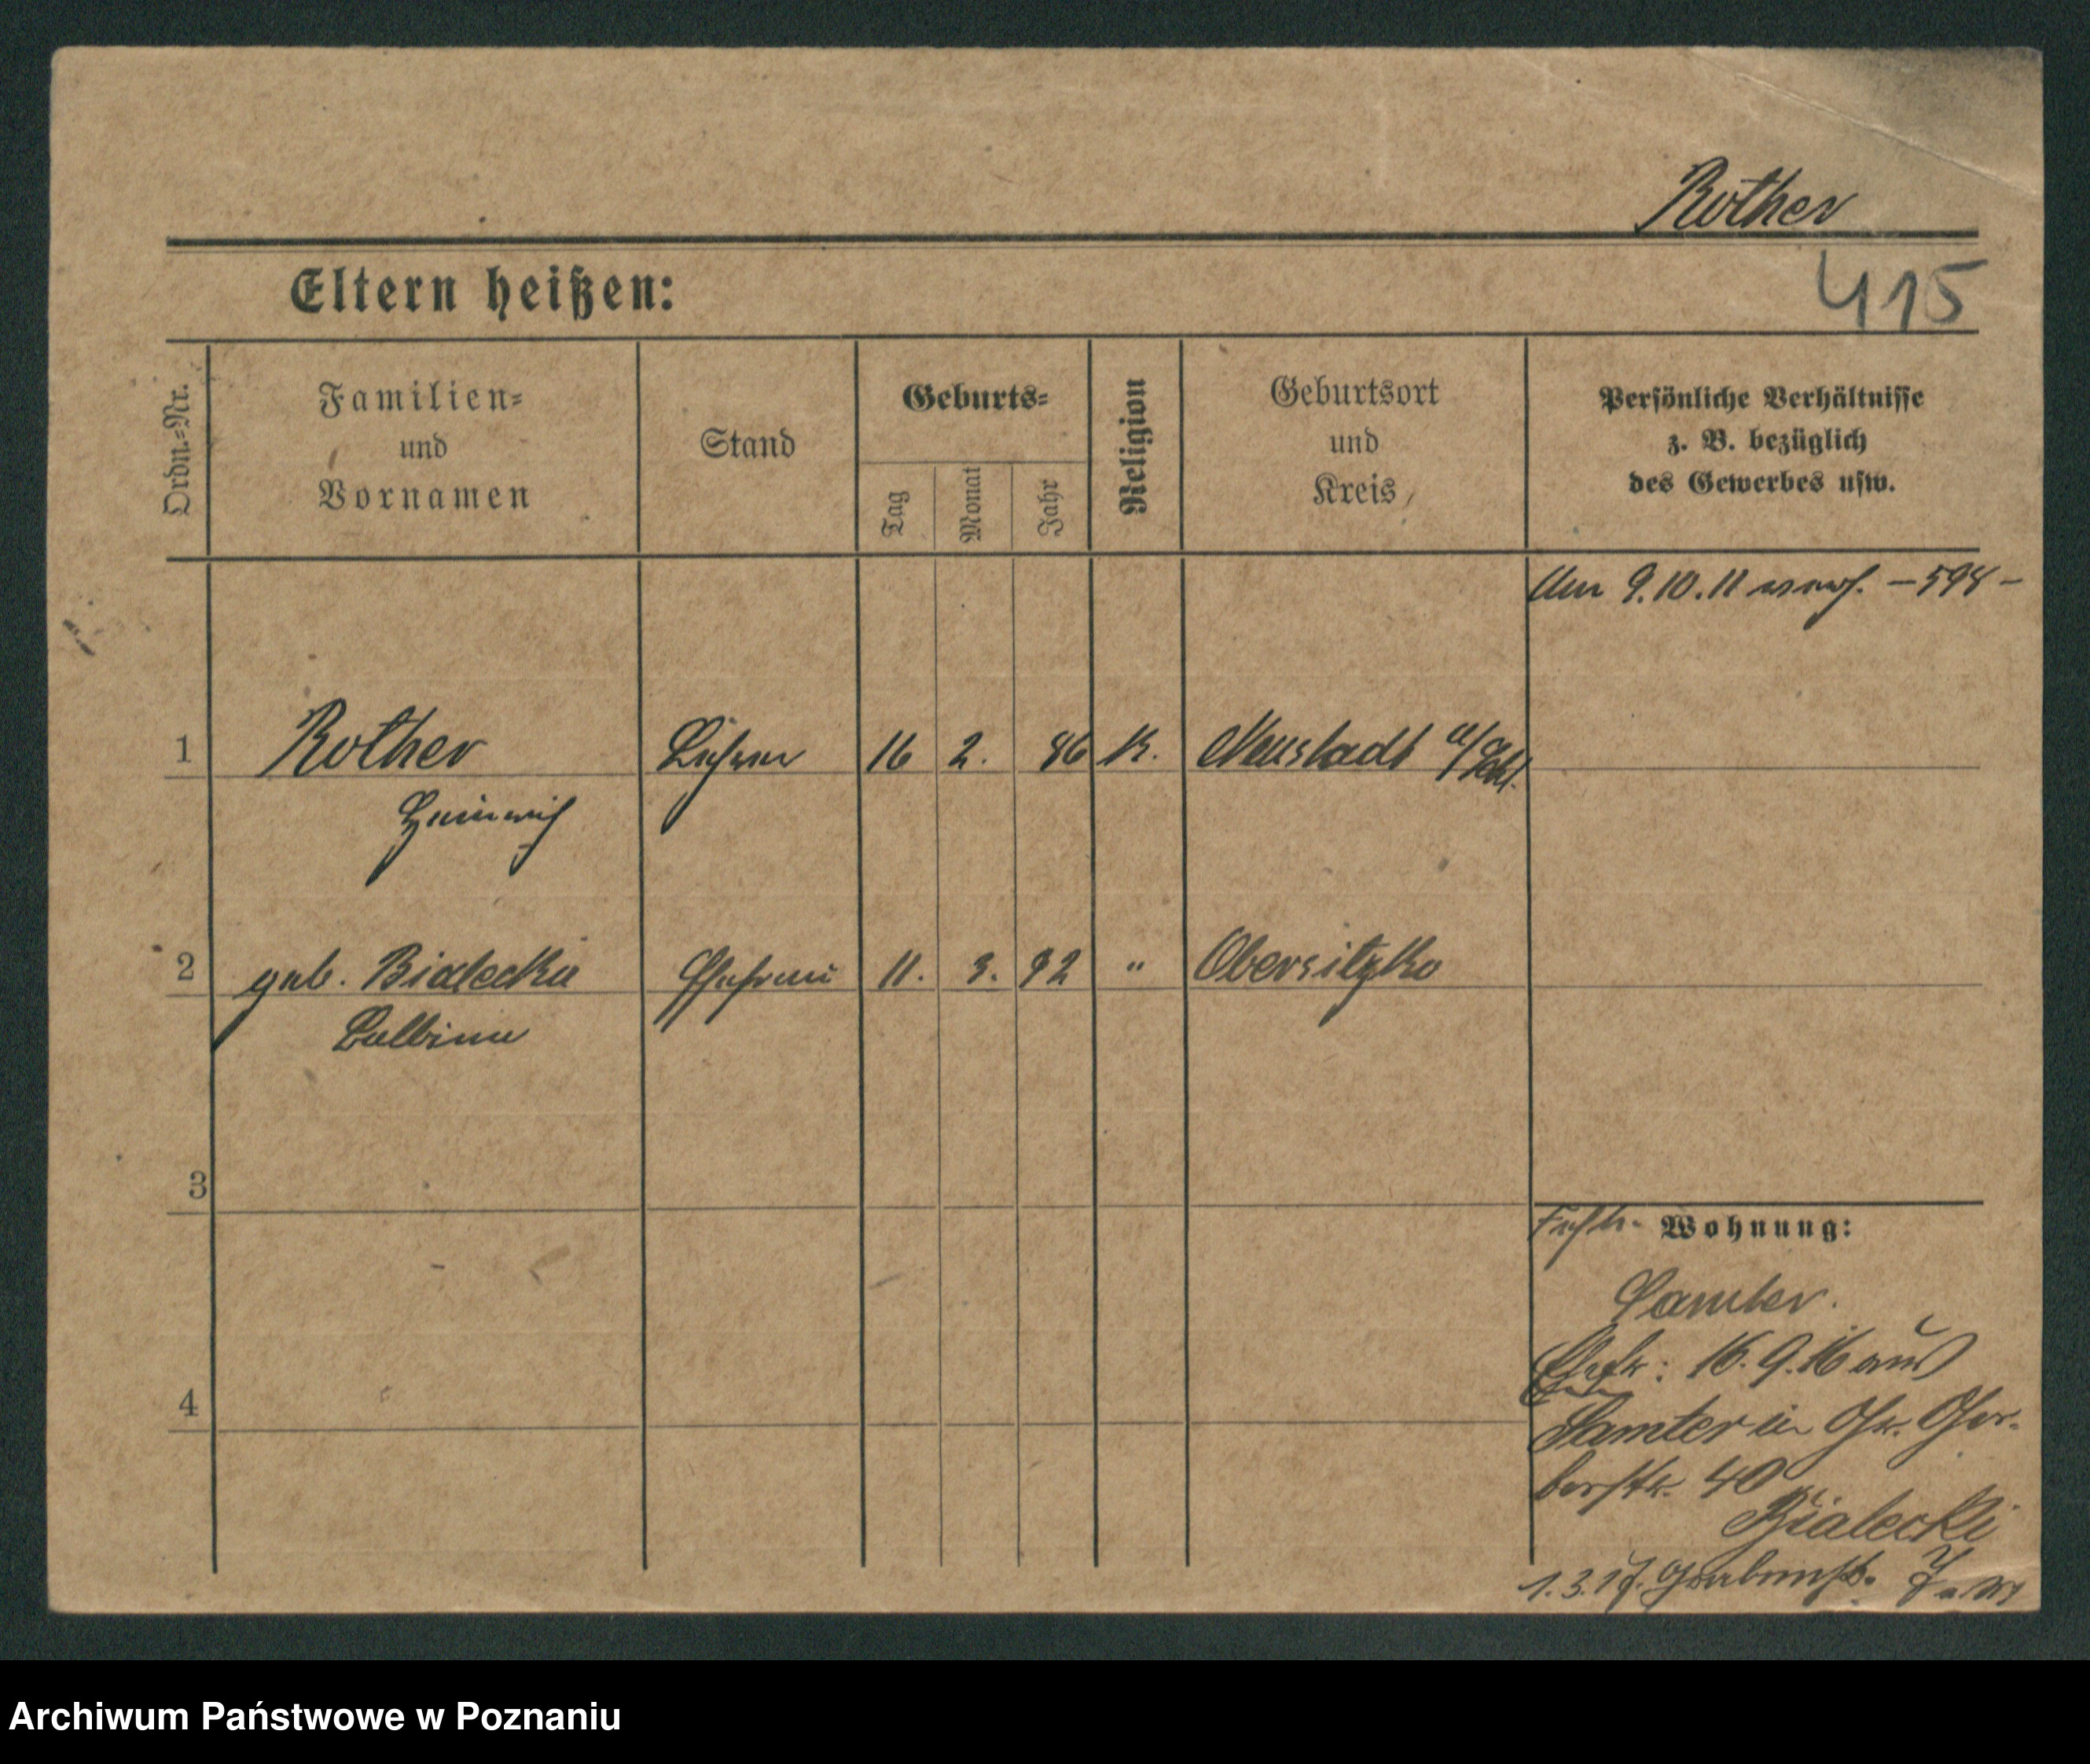 Rother
415
Eltern heißen:
Ordn.-Nr.
Familien-
und
Vornamen
Stand
Geburts-
Tag
Monat
Jahr
Religion
Geburtsort
und
Kreis
Persönliche Verhältnisse
z. B. bezüglich
des Gewerbes usw.
Am 9.10.11 verh. – 594 –
1 Rother Lehrer 16 2. 86 K. Neustadt
Heinrich
2 geb. Bialecka Ehefrau 11. 3. 92 " Obersitzko
Balbina
3
4
Wohnung:
Samter.
Ehefr: 16.9.16 aus
Samter in Gr. Ger-
berstr. 40
Bialecki
1.3.17.
Archiwum Państwowe w Poznaniu